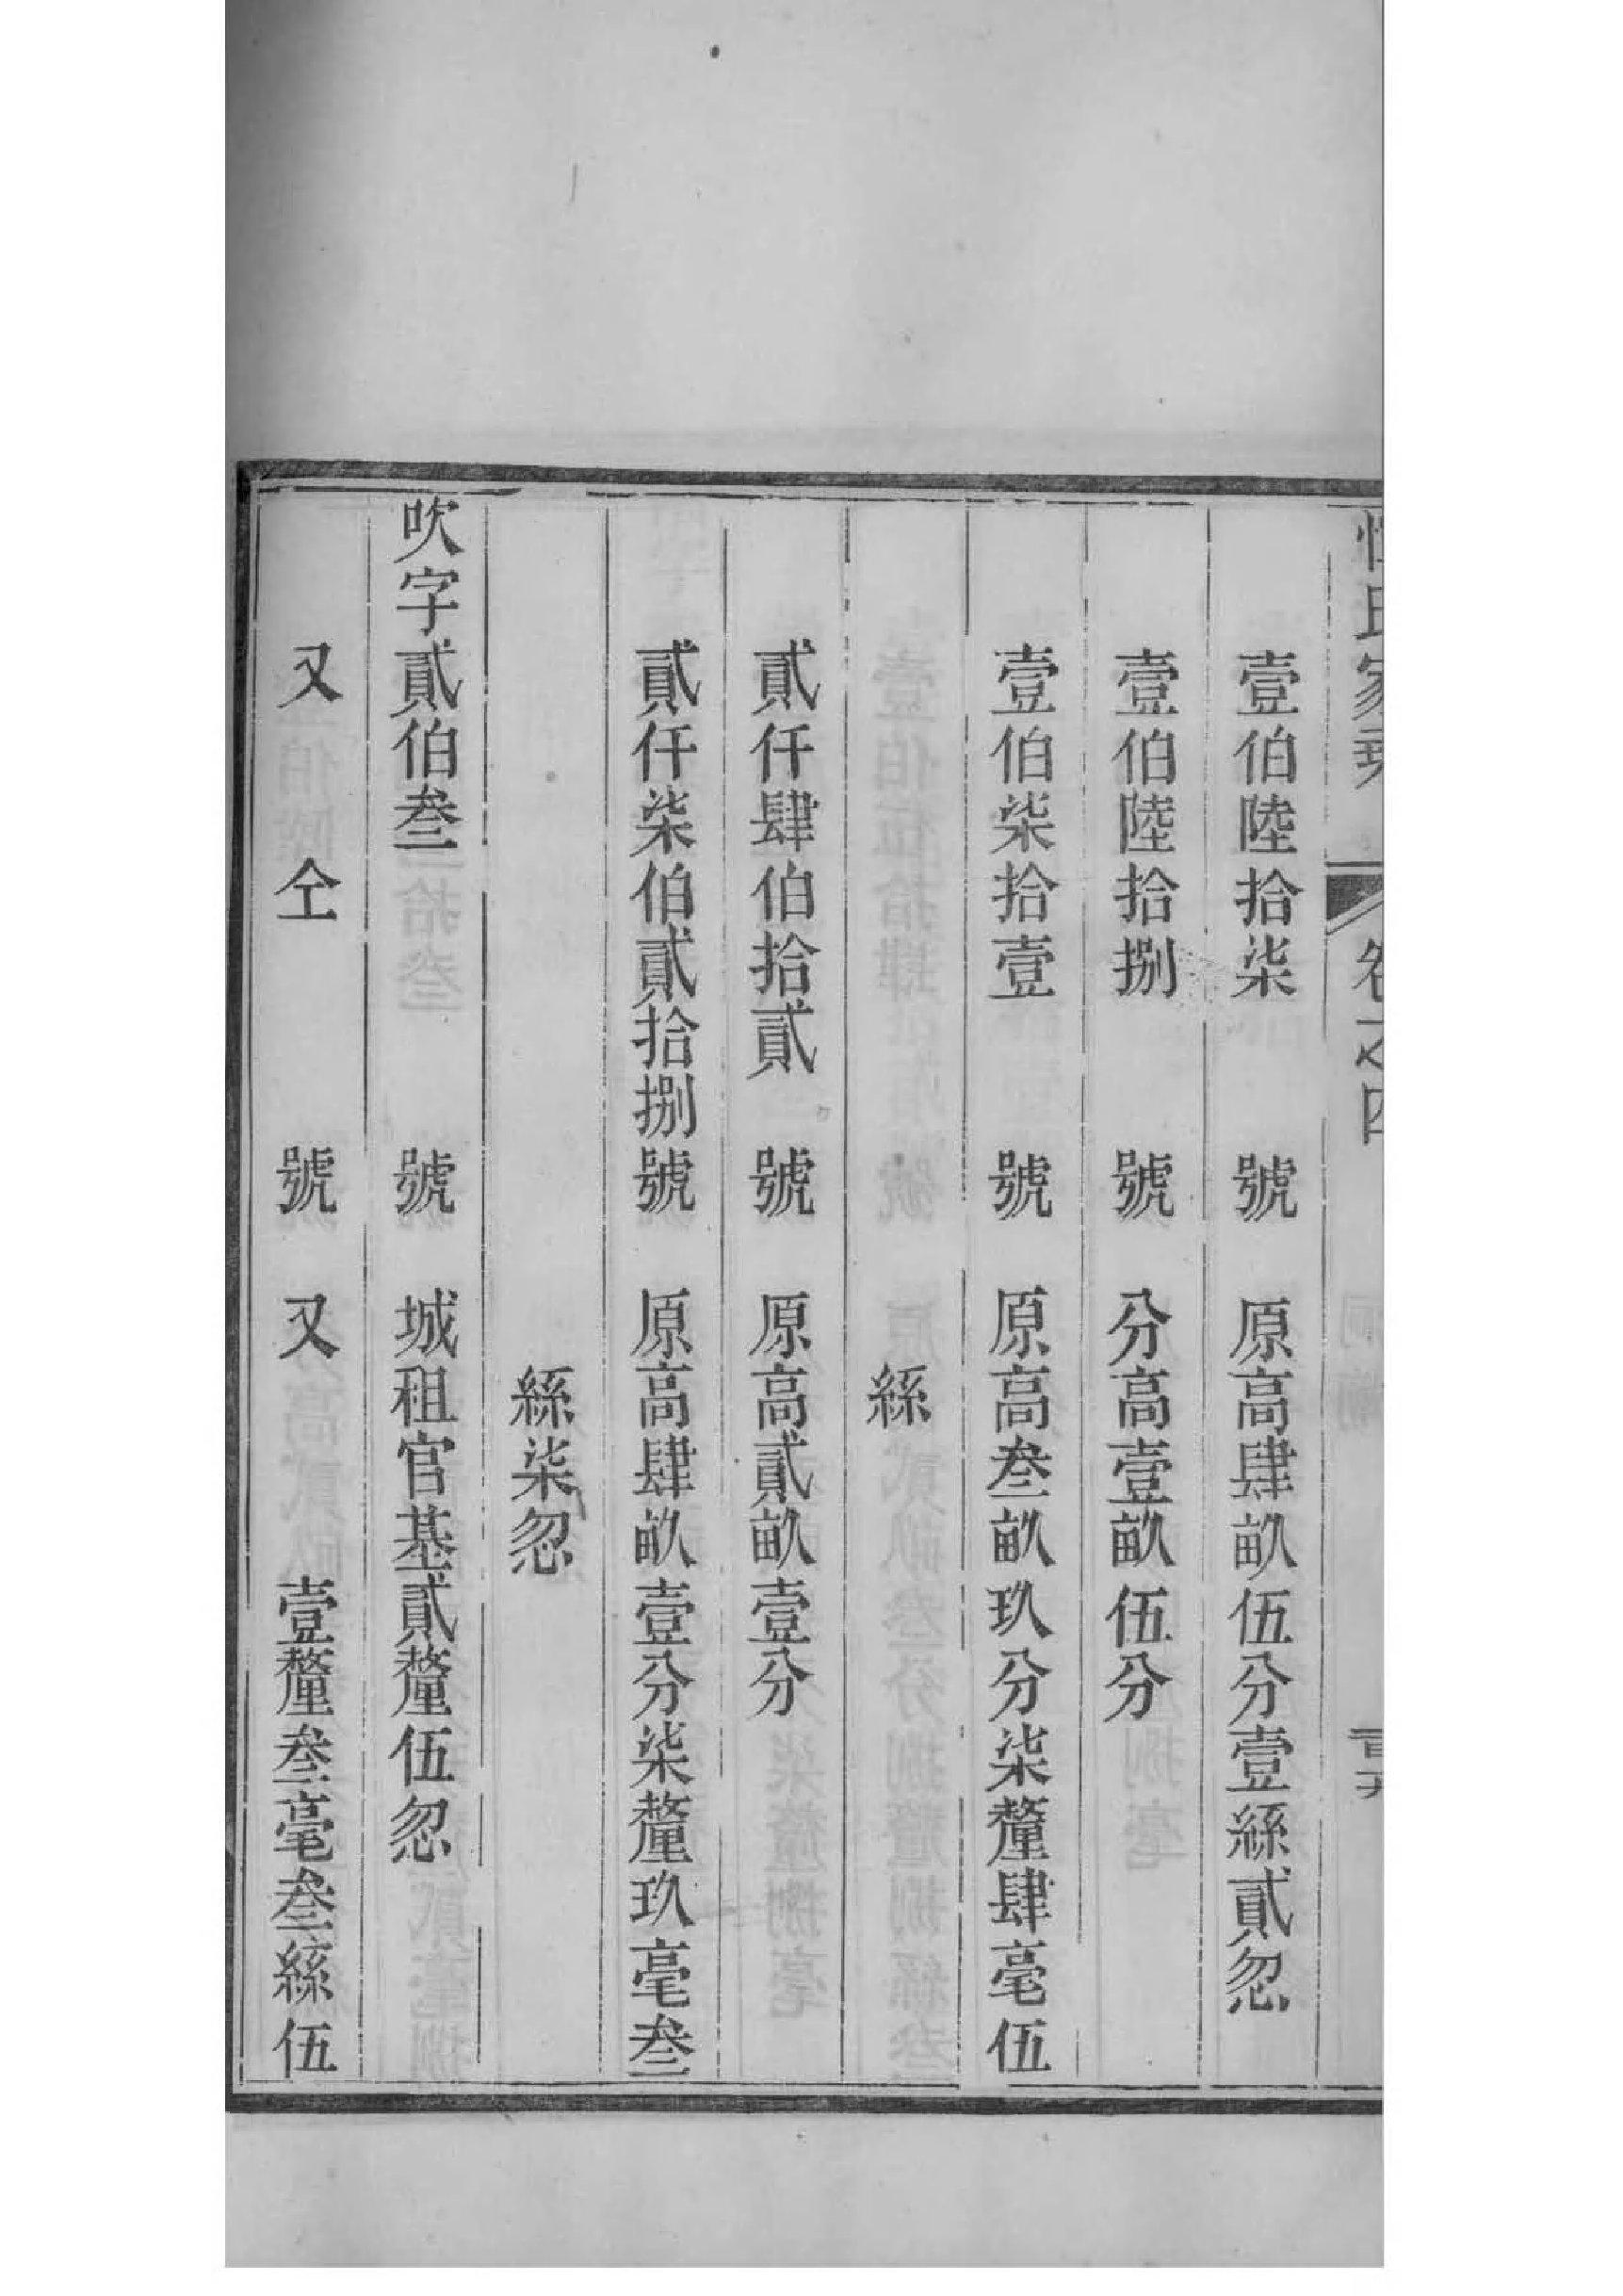 氏家乘 卷之四
壹伯陸拾柒 號 原高肆畝伍分壹絲貳忽
壹伯陸拾捌 號 分高壹畝伍分
壹伯柒拾壹 號 原高叁畝玖分柒釐肆毫伍
絲
貳仟肆伯拾貳 號 原高貳畝壹分
貳仟柒伯貳拾捌號 原高肆畝壹分柒釐玖毫叁
絲柒忽
吹字貳伯叁 號 城租官基貳釐伍忽
又 仝 號 又 壹釐叁毫叁絲伍